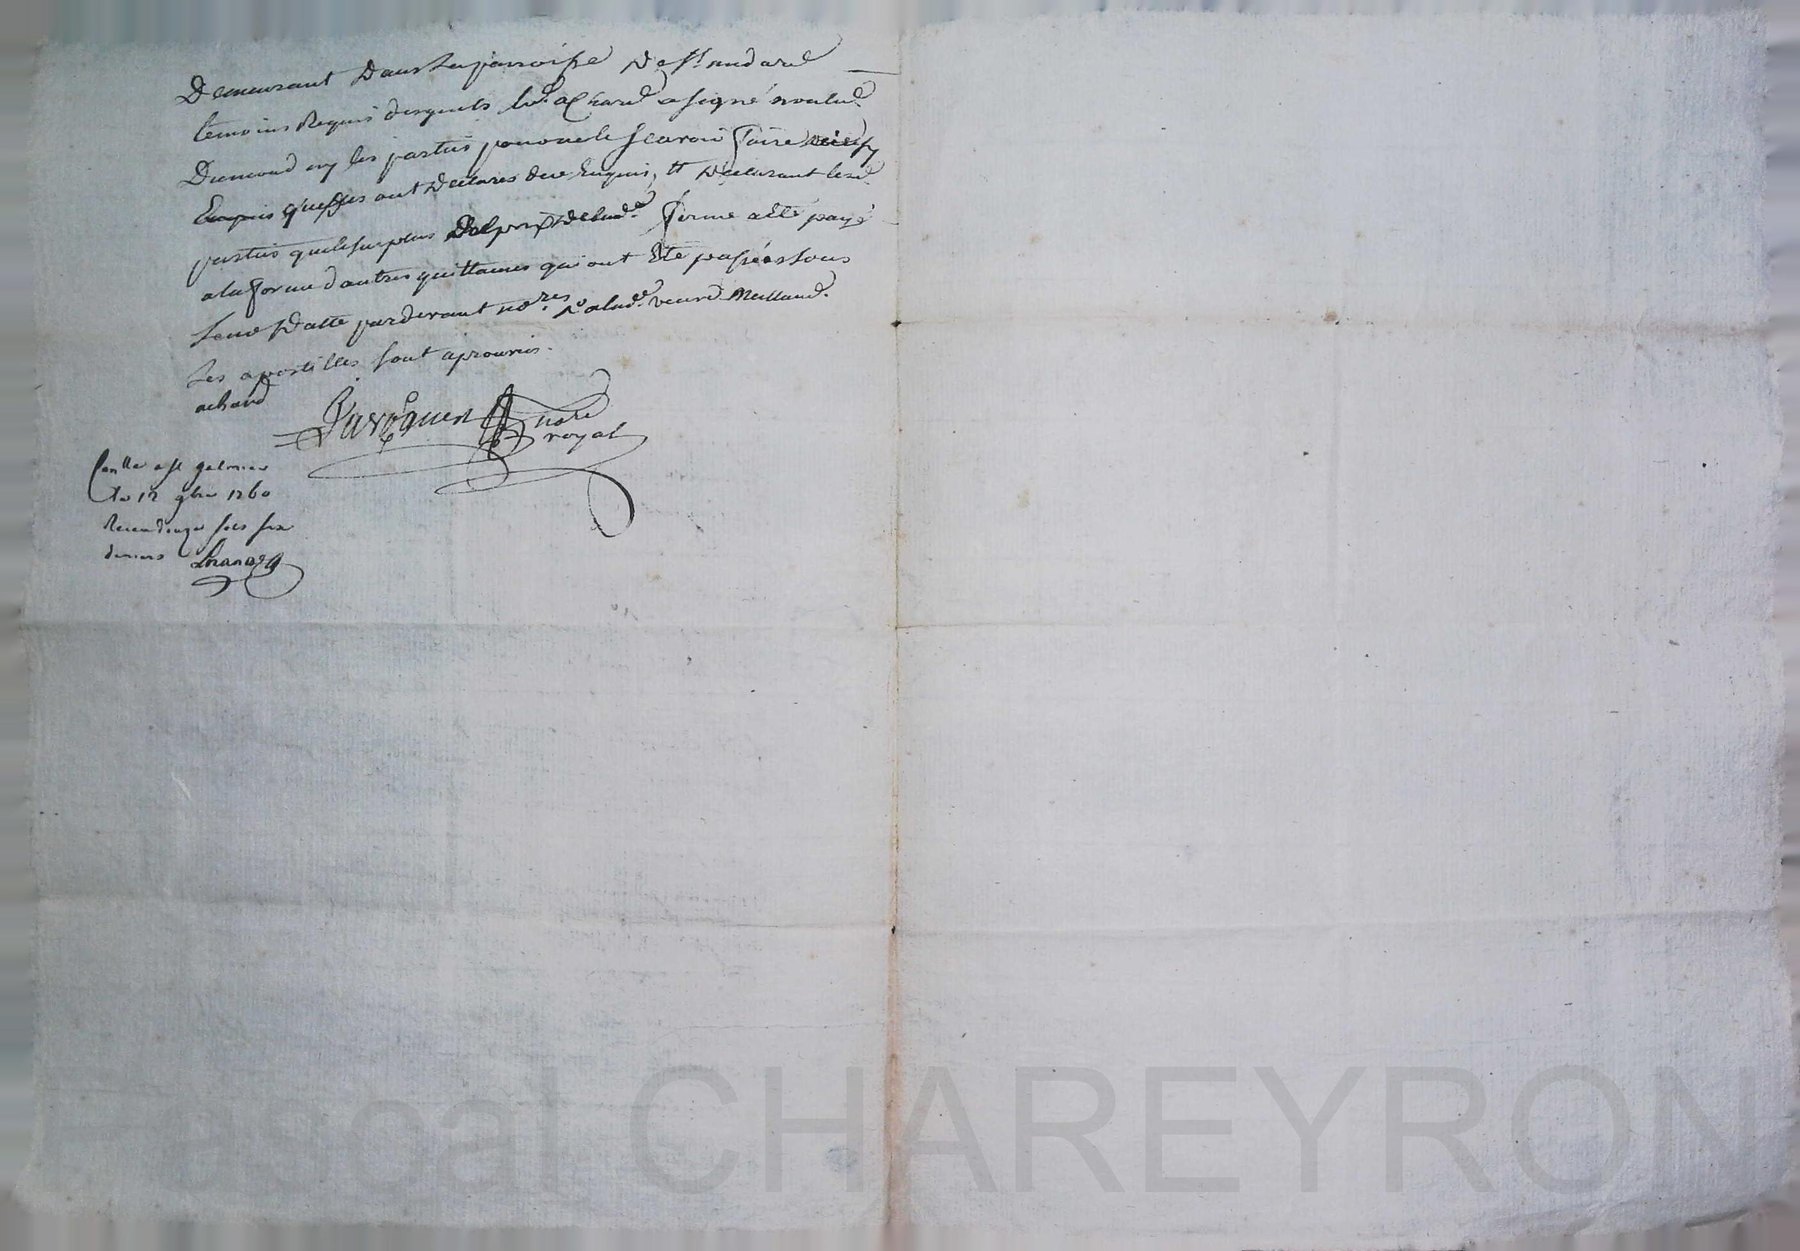 Demeurant Dans La parroisse De st andard
temoins Requis desquels led. achard a signé non led.
Dumond ny les parties pour ne le scavoir faire
Enquis quelles ont Declarés de ce Enquis, Et Declarant lesd.
parties que le surplus Del prix de lad.e ferme a été payé
a la forme d'autres quittances qui ont été passées sous
leur Datte pardevant no.res a lad.e veuve Meilland.
Les apostilles sont aprouvées.
achard
notre
royal
Conllé a st galmier
le 12 9bre 1760
Receu douze sols six
deniers
Pascal CHAREYRON